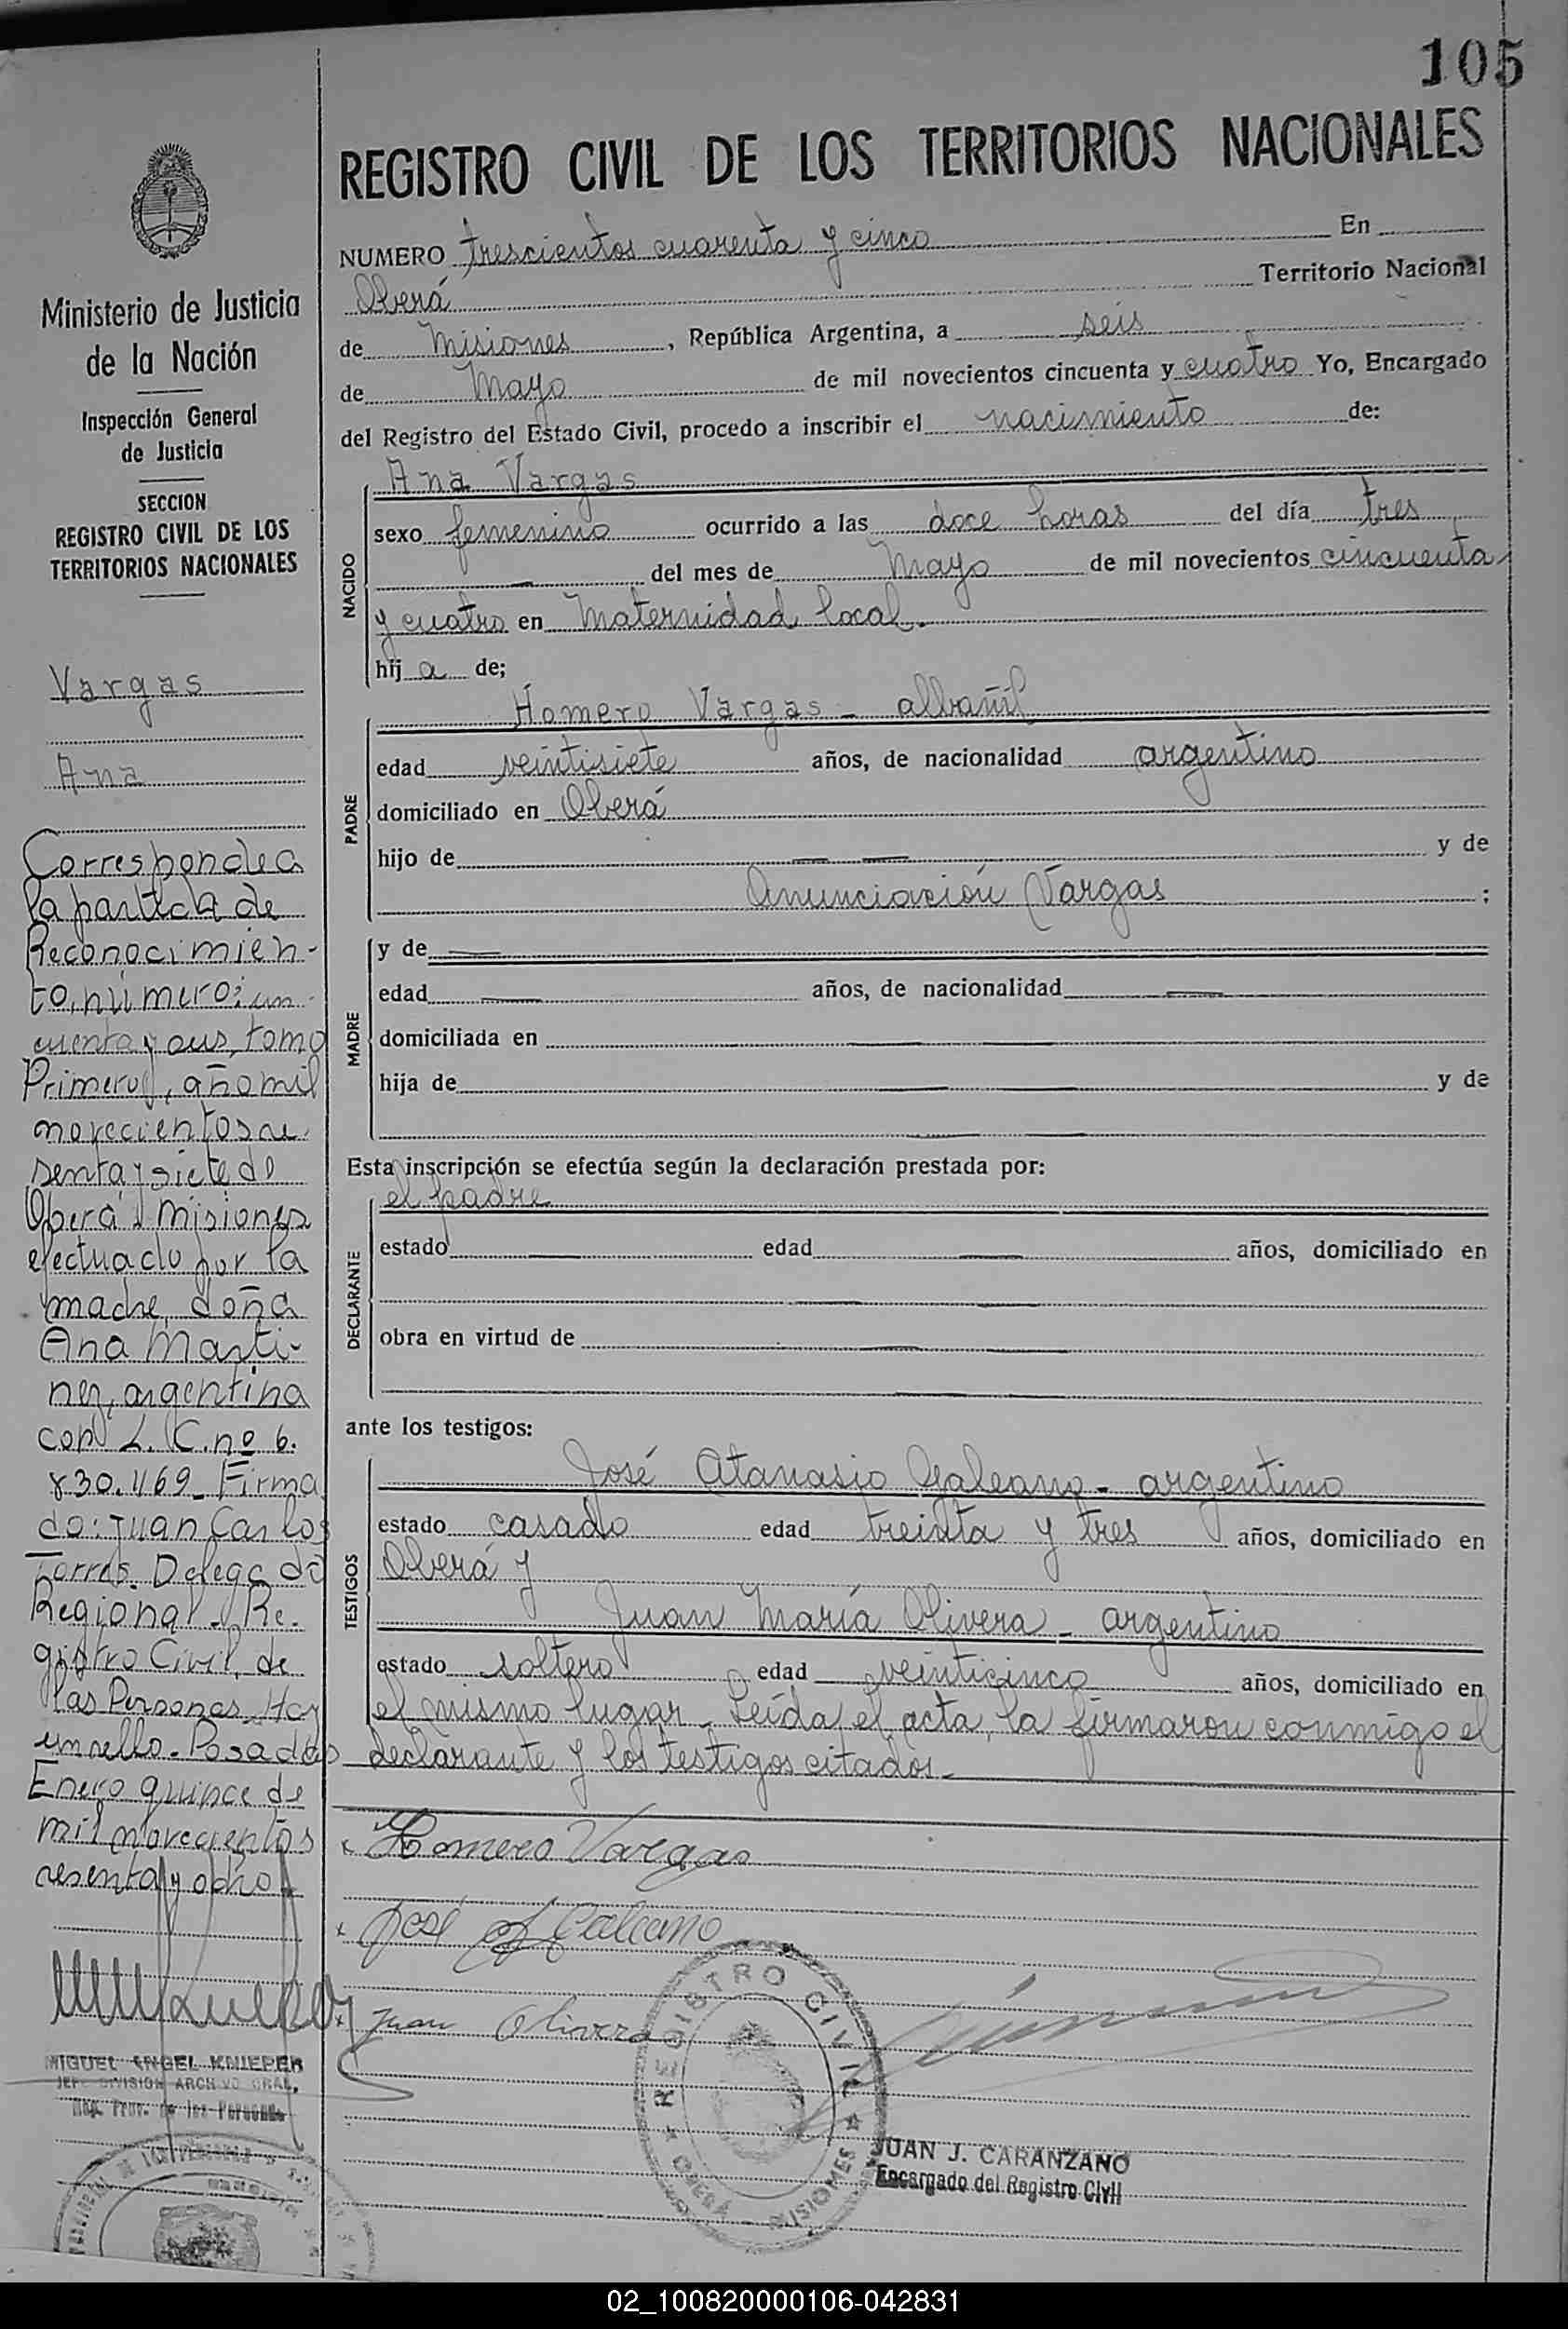 105
REGISTRO CIVIL DE LOS TERRITORIOS NACIONALES
NUMERO trescientos cuarenta y cinco En
Oberá Territorio Nacional
de Misiones, República Argentina, a seis
de Mayo de mil novecientos cincuenta y cuatro Yo, Encargado
del Registro del Estado Civil, procedo a inscribir el nacimiento de:
NACIDO
Ana Vargas
sexo femenino ocurrido a las doce horas del día tres
— del mes de Mayo de mil novecientos cincuenta
y cuatro en Maternidad local.
hij a de;
PADRE
Homero Vargas - albañil
edad veintisiete años, de nacionalidad argentino
domiciliado en Oberá
hijo de — — y de
Anunciación Vargas ;
MADRE
y de —
edad — años, de nacionalidad —
domiciliada en — —
hija de — — y de
— —
Esta inscripción se efectúa según la declaración prestada por:
DECLARANTE
el padre
estado — edad — años, domiciliado en
— —
obra en virtud de — —
— —
ante los testigos:
TESTIGOS
José Atanasio Galeano - argentino
estado casado edad treinta y tres años, domiciliado en
Oberá y
Juan María Olivera - argentino
estado soltero edad veinticinco años, domiciliado en
el mismo lugar. Leída el acta, la firmaron conmigo el
declarante y los testigos citados.-
x Homero Vargas
x José A Galeano
x Juan Olivera
REGISTRO CIVIL
OBERA - MISIONES
JUAN J. CARANZANO
Encargado del Registro Civil
Ministerio de Justicia
de la Nación
Inspección General
de Justicia
SECCION
REGISTRO CIVIL DE LOS
TERRITORIOS NACIONALES
Vargas
Ana
Corresponde a
la partida de
Reconocimien-
to, número: cin
cuenta y dos, tomo
Primero, año mil
novecientos se
senta y siete de
Oberá Misiones
efectuado por la
madre, doña
Ana Marti-
nez, argentina
con L. C. nº 6.
830.469_ Firma
do: Juan Carlos
Torres. Delegado
Regional. Re-
gistro Civil, de
las Personas. Hay
un sello. Posadas
Enero quince de
mil novecientos
sesenta y ocho
MIGUEL ANGEL KNIEPER
JEFE DIVISION ARCHIVO GRAL.
Reg. Prov. de las Personas
02_100820000106-042831